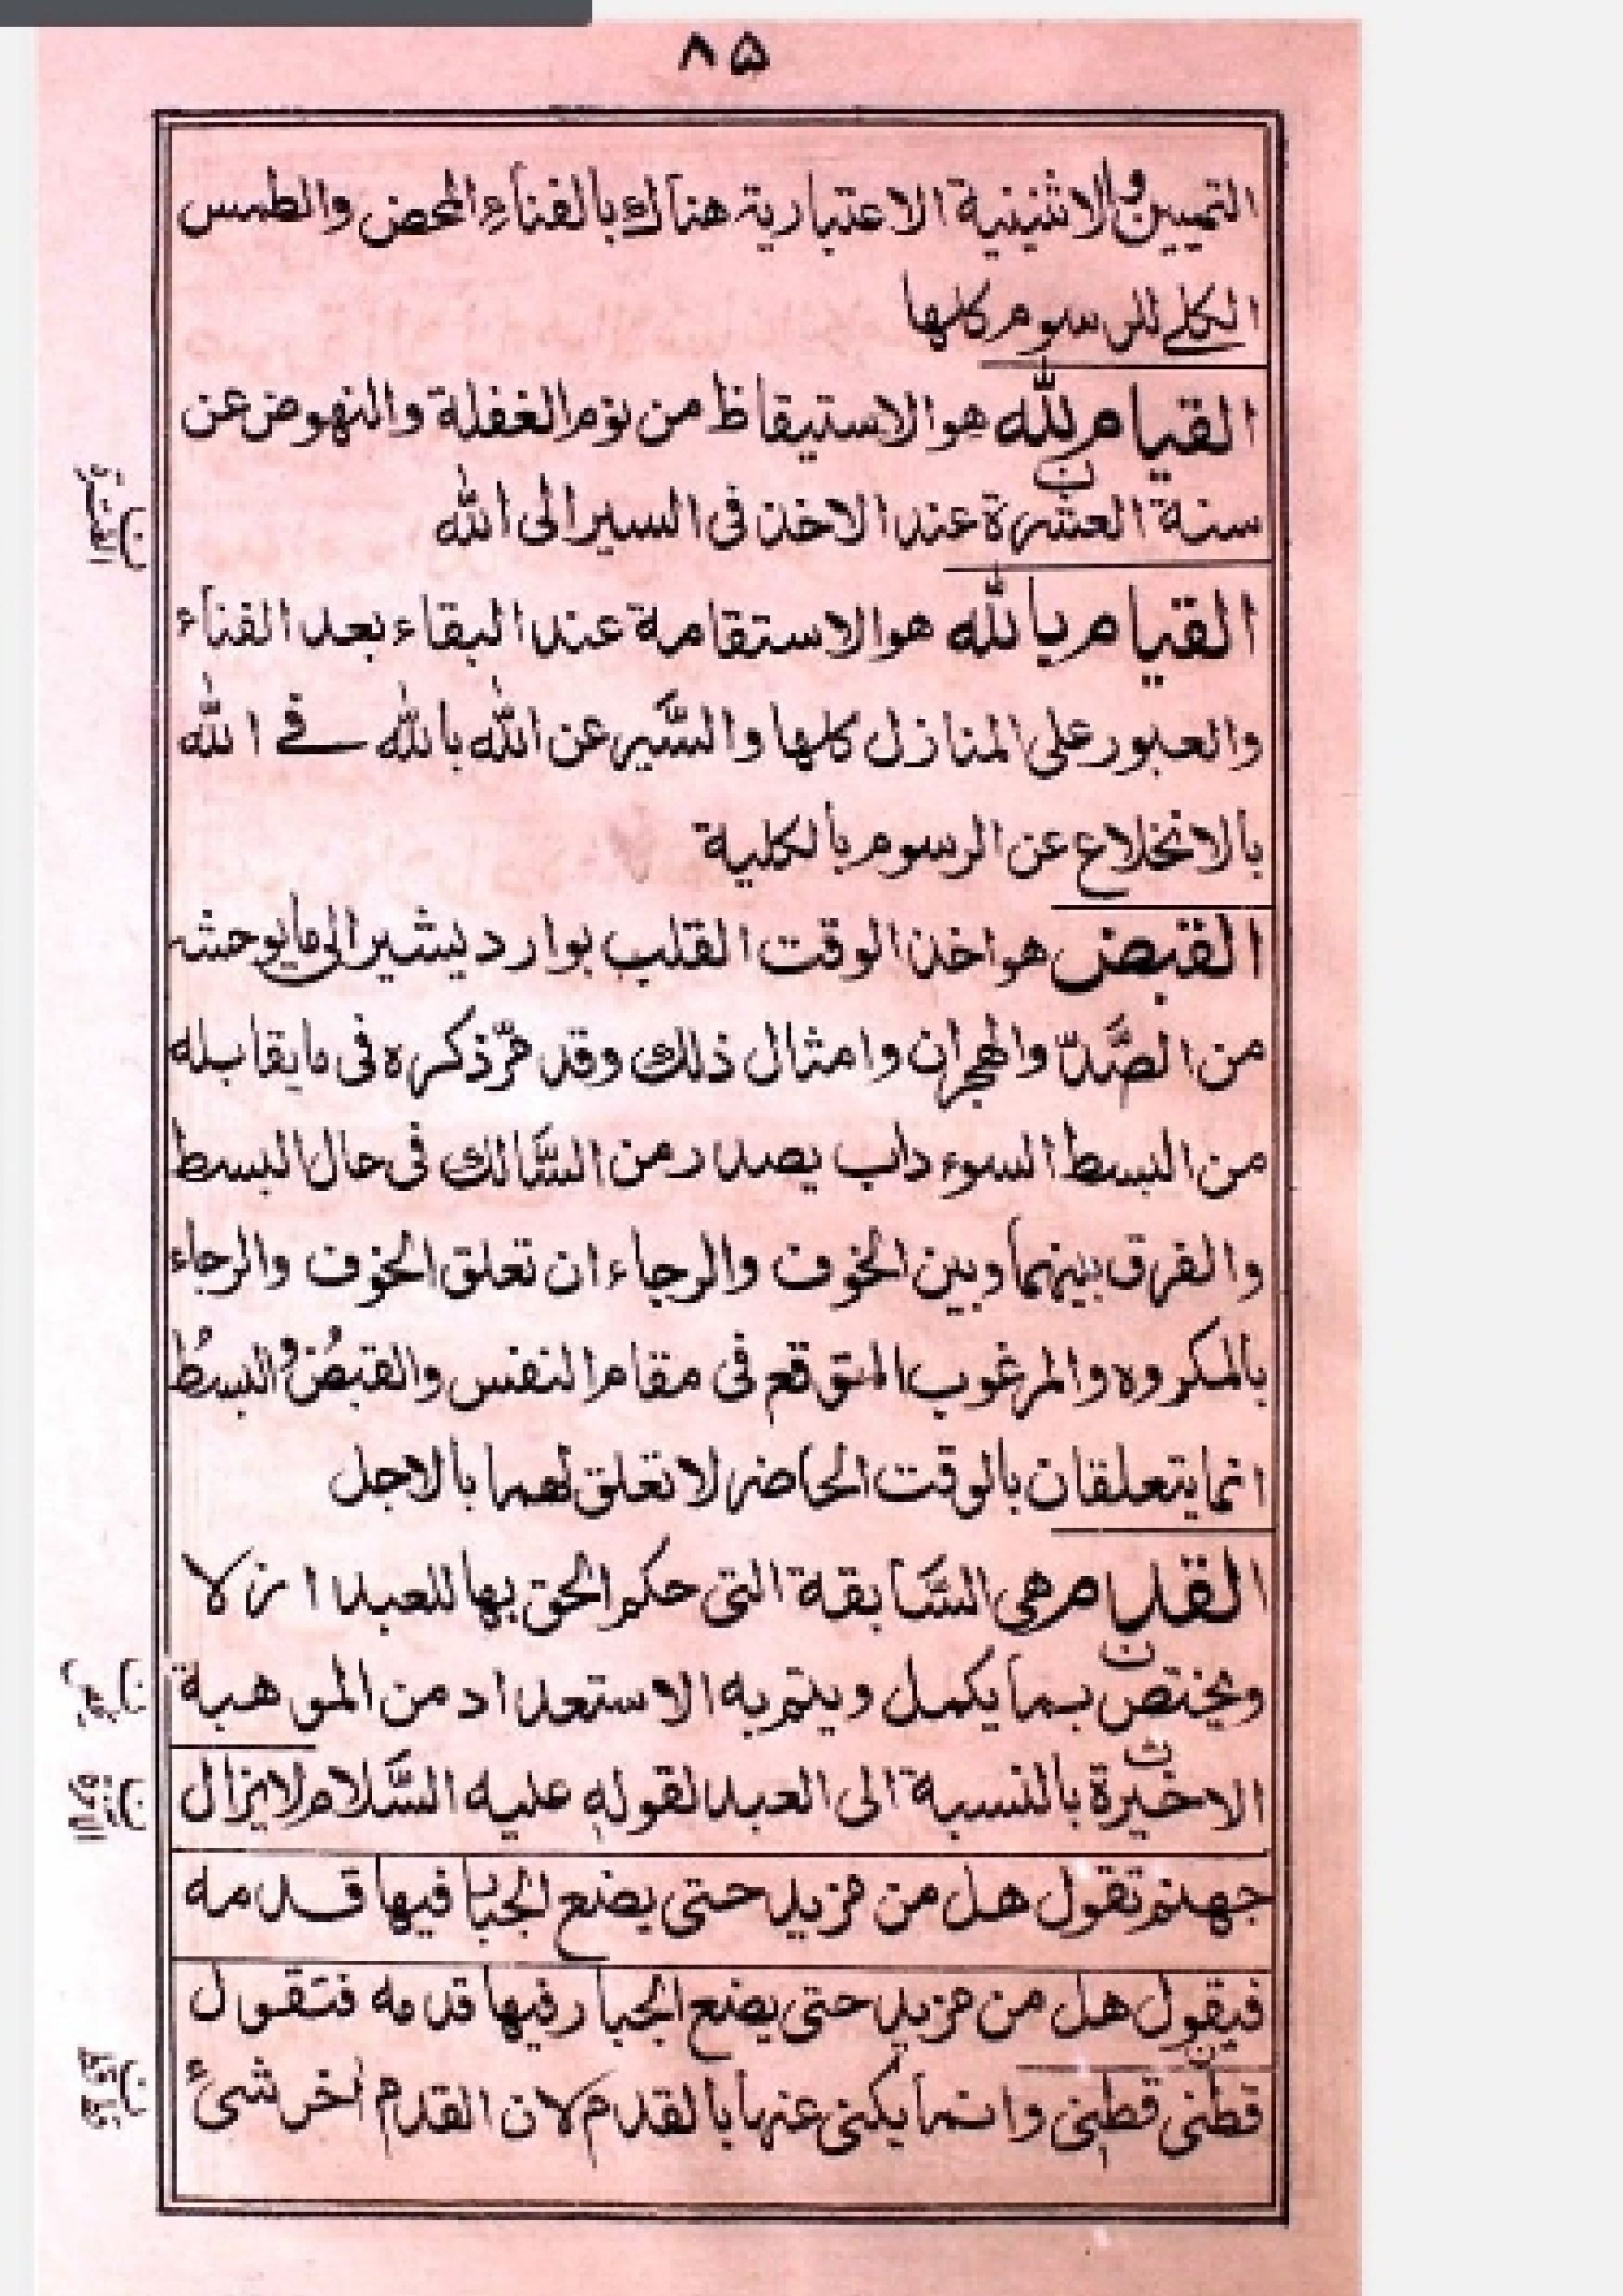 ٨٥
التمييز والاثنينية الاعتبارية هناك بالفناء المحض والطمس
الكلے للرسوم كلها
القيام للّٰه هو الاستيقاظ من نوم الغفلة والنهوض عن
سنة العنترة عند الاخذ فى السير الى اللّٰه
القيام باللّٰه هو الاستقامة عند البقاء بعد الفناء
والعبور على المنازل كلها والسَّير عن اللّٰه باللّٰه فے اللّٰه
بالانخلاع عن الرسوم بالكلية
القبض هو اخذ الوقت القلب بوارد يشير الى ما يوحشه
من الصَّدّ والهجران وامثال ذلك وقد مرّ ذكره فى ما يقابله
من البسط السوء داب يصدر من السَّالك فى حال البسط
والفرق بينهما وبين الخوف والرجاء ان تعلق الخوف والرجاء
بالمكروه والمرغوب المتوقع فى مقام النفس والقبضُ والبسطُ
انما يتعلقان بالوقت الحاضر لا تعلق لهما بالاجل
القدم هى السَّابقة التى حكم الحق بها للعبد ازلا
ويختص بما يكمل ويتم به الاستعداد من الموهبة
الاخيرة بالنسبة الى العبد لقوله عليه السَّلام لا يزال
جهنم تقول هل من مزيد حتى يضع الجبار فيها قدمه
فيقول هل من مزيد حتى يضع الجبار فيها قدمه فتقول
قطنى قطنى وانما يكنى عنها بالقدم لان القدم اخر شئ